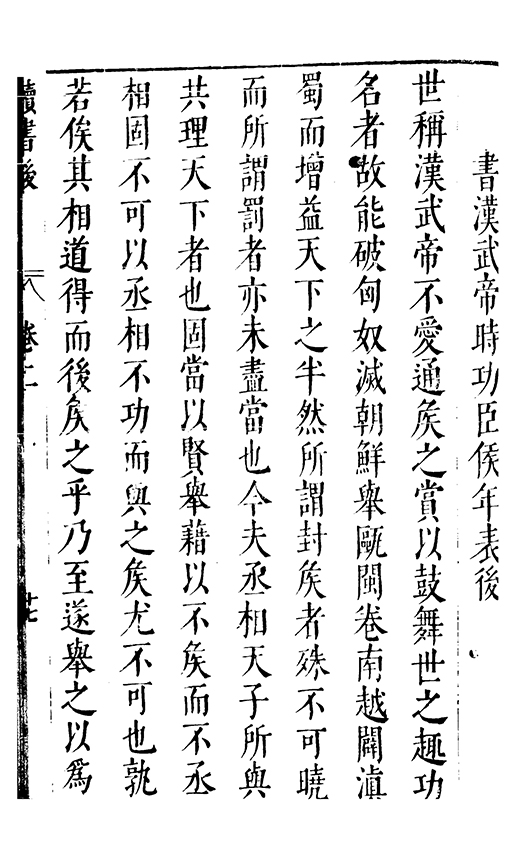 書漢武帝時功臣侯年表後
世稱漢武帝不愛通矦之賞以鼓舞世之趣功
名者故能破匈奴滅朝鮮舉甌閩卷南越闢滇
蜀而增益天下之半然所謂封矦者殊不可曉
而所謂罰者亦未盡當也今夫丞相天子所與
共理天下者也固當以賢舉藉以不矦而不丞
相固不可以丞相不功而輿之矦尤不可也孰
若俟其相道得而後矦之乎乃至遂舉之以爲
讀書後 卷二 十七